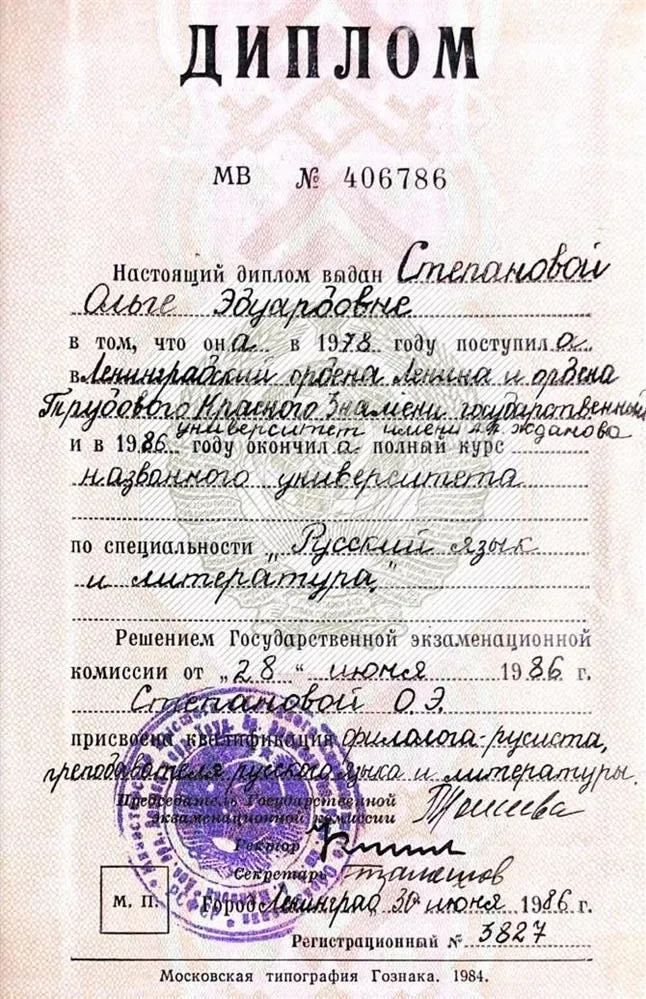 ДИПЛОМ
МВ № 406786
Настоящий диплом выдан Степановой
Ольге Эдуардовне
в том, что она в 1978 году поступила
в Ленинградский ордена Ленина и ордена
Трудового Красного Знамени государственный
университет имени А.А. Жданова
и в 1986 году окончила полный курс
названного университета
по специальности „Русский язык
и литература."
Решением Государственной экзаменационной
комиссии от „28“ июня 1986 г.
Степановой О.Э.
присвоена квалификация филолога-русиста,
преподавателя русского языка и литературы.
Председатель Государственной
экзаменационной комиссии
Ректор
Секретарь
М. П.
Город Ленинград, 30 июня 1986 г.
Регистрационный № 3827
Московская типография Гознака. 1984.